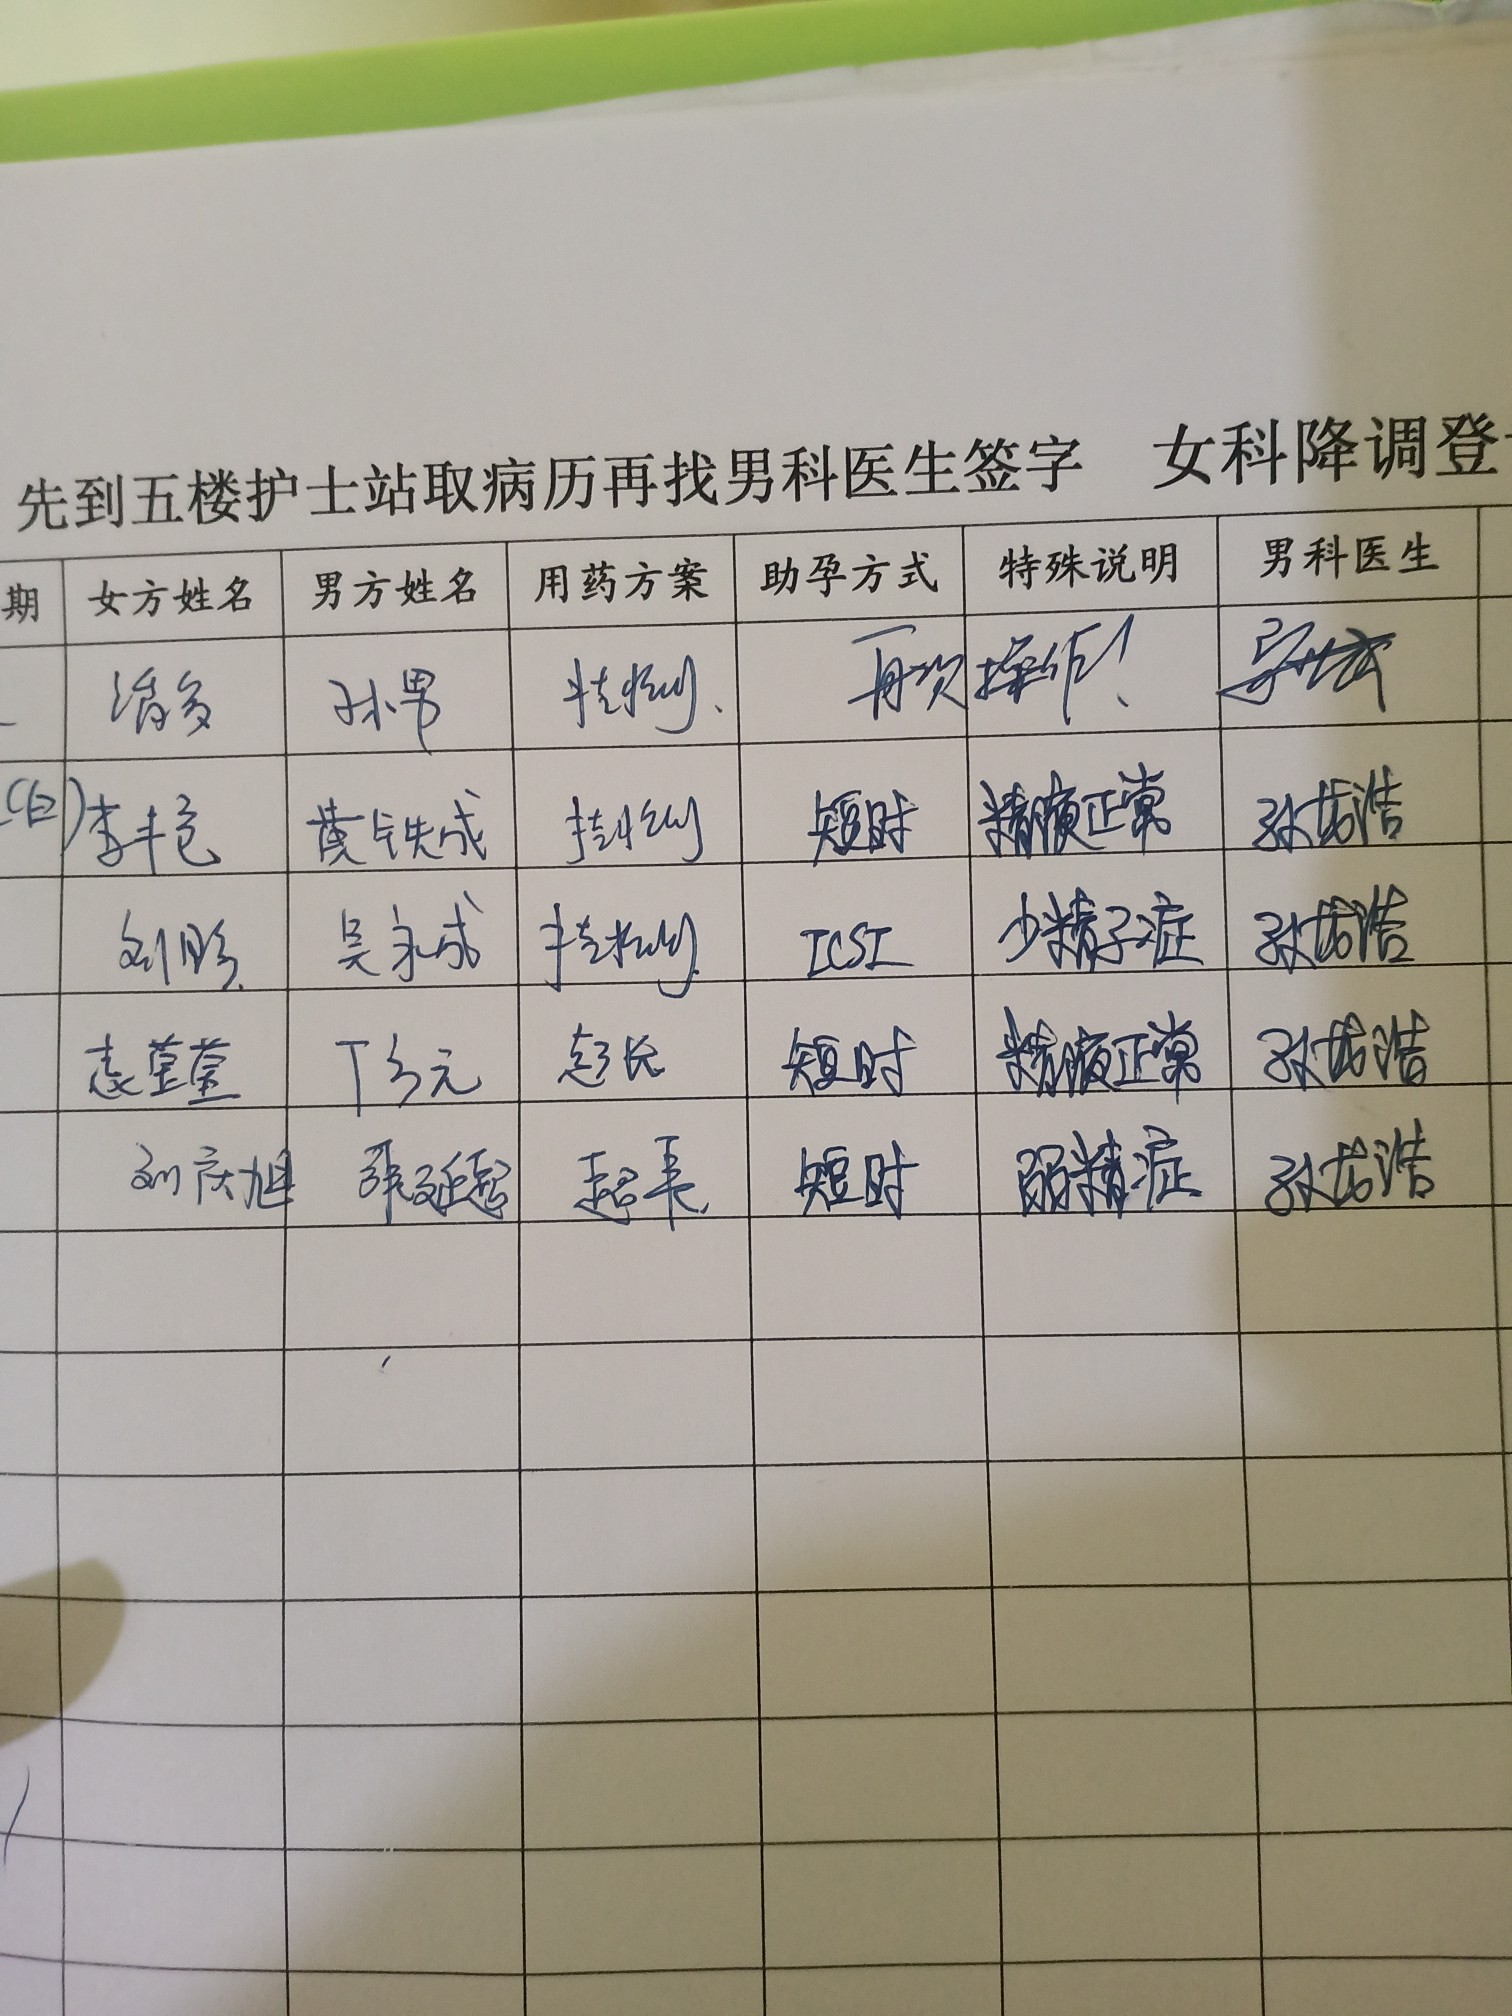 先到五楼护士站取病历再找男科医生签字 女科降调登
期 女方姓名 男方姓名 用药方案 助孕方式 特殊说明 男科医生
潘多 孙男 拮抗剂、 再次操作!
李丰 黄铁成 拮抗剂 短时 精液正常 孙龙浩
刘盼 吴永成 拮抗剂 ICSI 少精子症 孙龙浩
袁莹莹 丁多元 超长 短时 精液正常 孙龙浩
刘庆旭 张延超 超长 短时 弱精症 孙龙浩